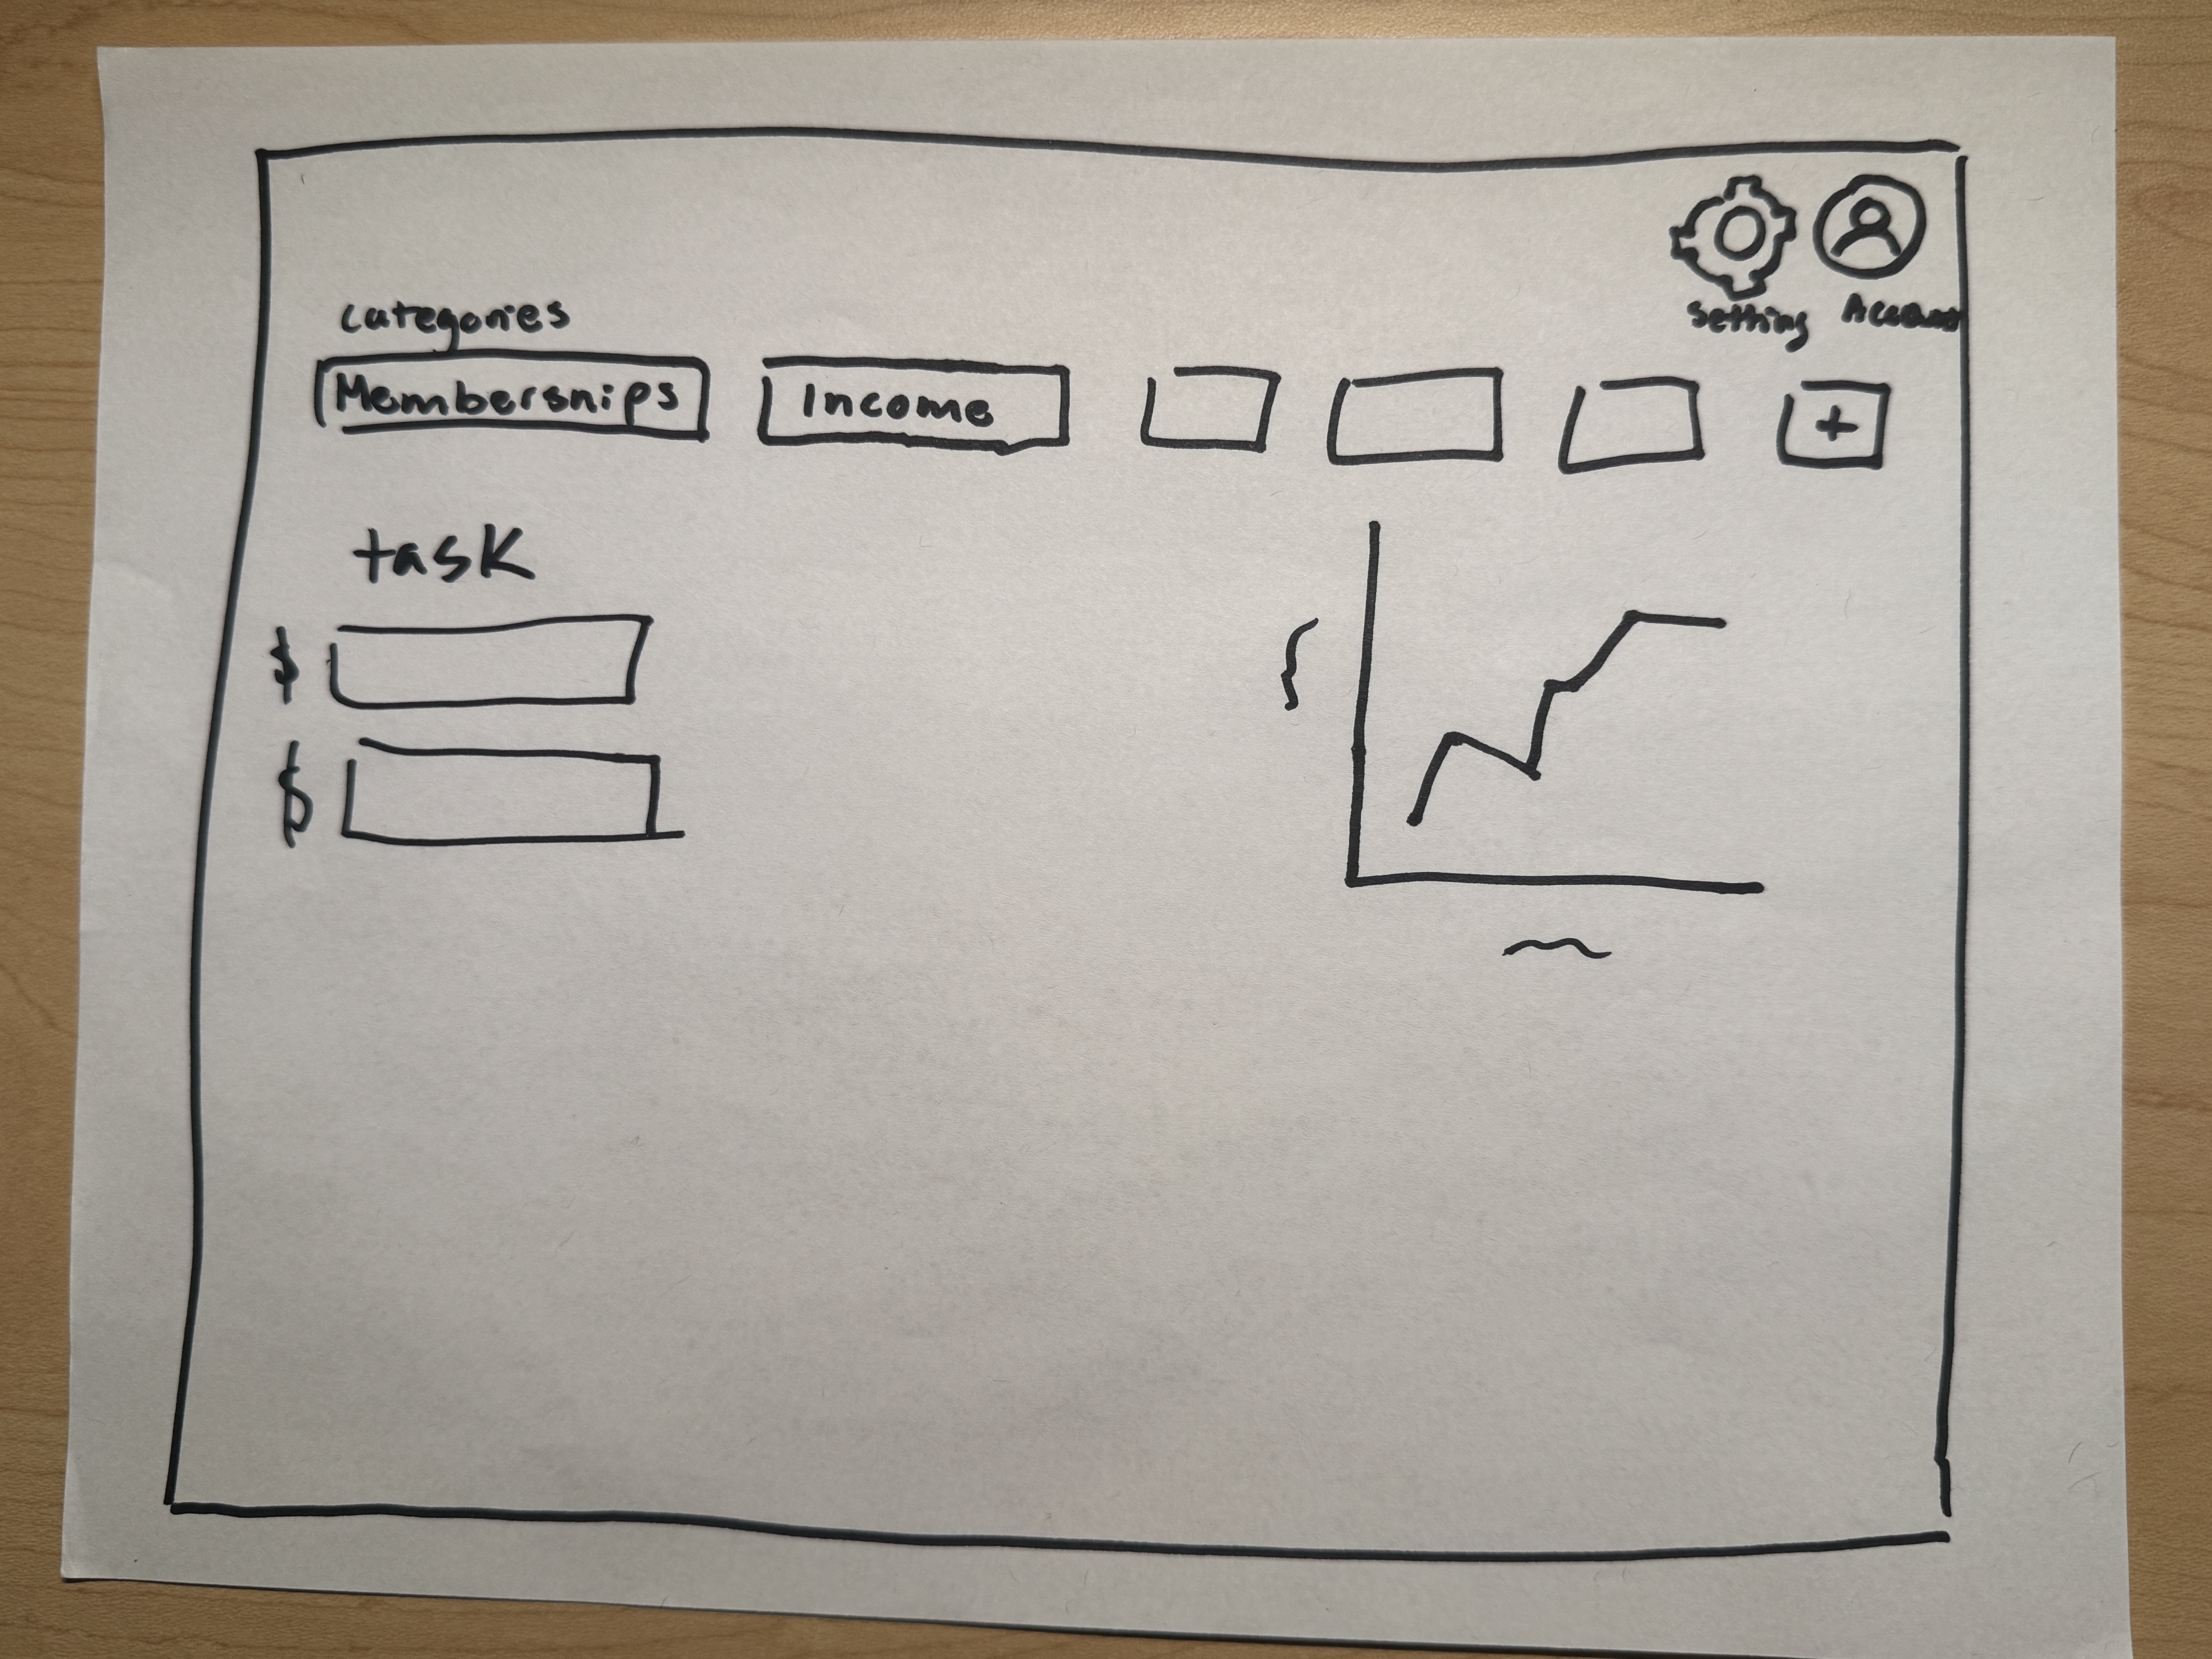 Setting Account
categories
Memberships Income +
task
$
$